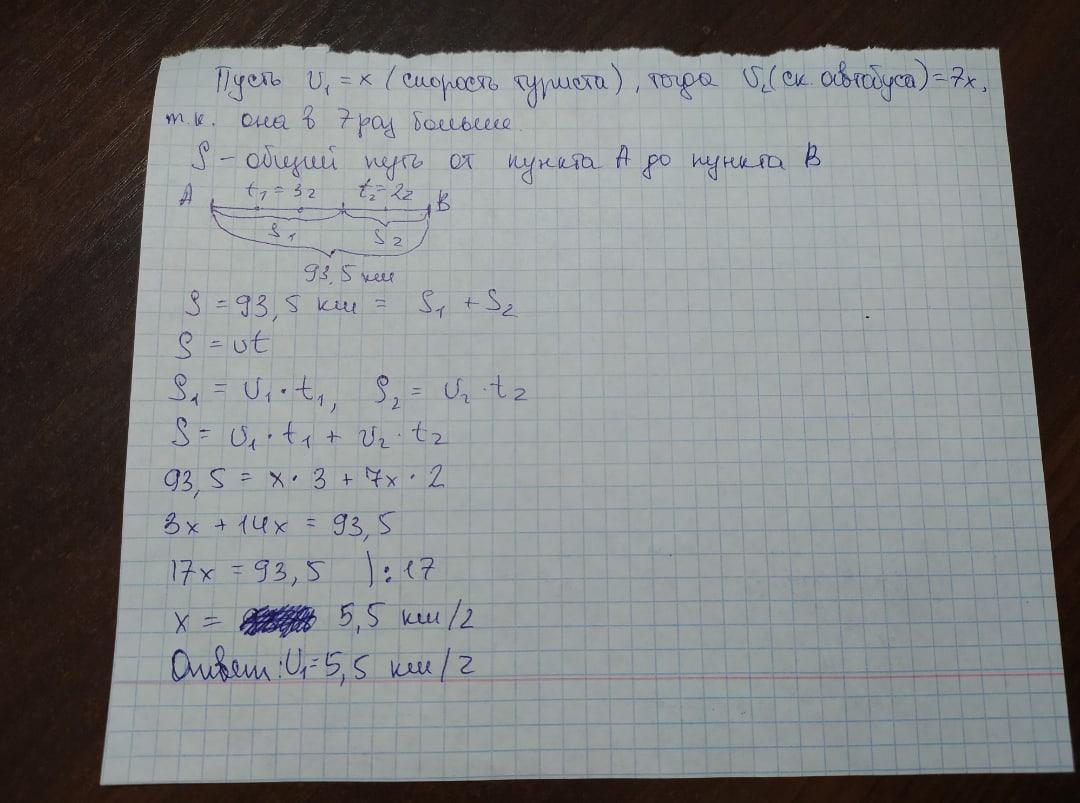 Пусть υ₁ = x (скорость туриста), тогда υ₂(ск. автобуса)=7x,
т.к. она в 7 раз больше.
S – общий путь от пункта А до пункта В
A t₁ = 3г t₂ = 2г B
S₁ S₂
93,5 км
S = 93,5 км = S₁ + S₂
S = υt
S₁ = υ₁ · t₁, S₂ = υ₂ · t₂
S = υ₁ · t₁ + υ₂ · t₂
93,5 = x · 3 + 7x · 2
3x + 14x = 93,5
17x = 93,5 ) : 17
x = 5,5 км/г
Ответ: υ₁=5,5 км/г